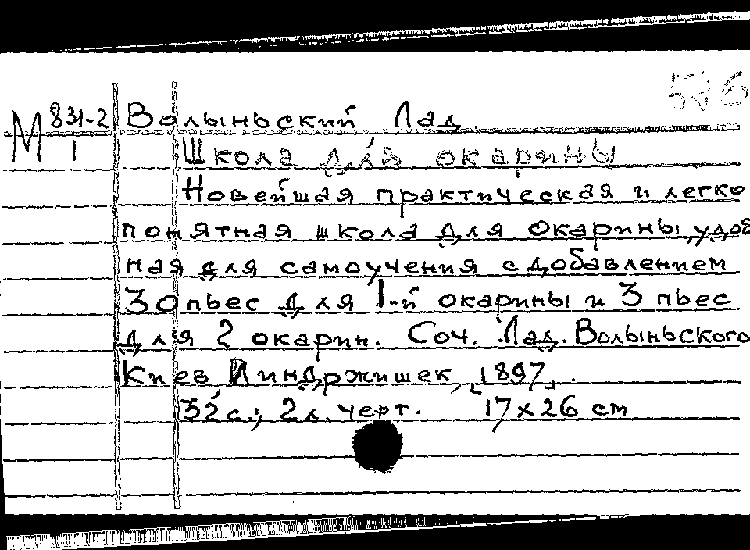 536
М 831-2/1
Волыньский Лад
Школа для окарины
Новейшая практическая и легко
понятная школа для окарины, удоб
ная для самоучения с добавлением
30 пьес для 1-й окарины и 3 пьес
для 2 окарин. Соч. Лад. Волыньского
Киев Индржишек, 1897.
32 с.; 2 л. черт. 17x26 см